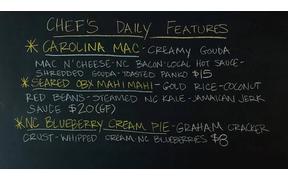 CHEF'S DAILY FEATURES
* CAROLINA MAC - CREAMY GOUDA
MAC N' CHEESE - NC BACON - LOCAL HOT SAUCE -
SHREDDED GOUDA - TOASTED PANKO $15
* SEARED OBX MAHI MAHI - GOLD RICE - COCONUT
RED BEANS - STEAMED NC KALE - JAMAICAN JERK
SAUCE $20 (GF)
* NC BLUEBERRY CREAM PIE - GRAHAM CRACKER
CRUST - WHIPPED CREAM - NC BLUEBERRIES $8